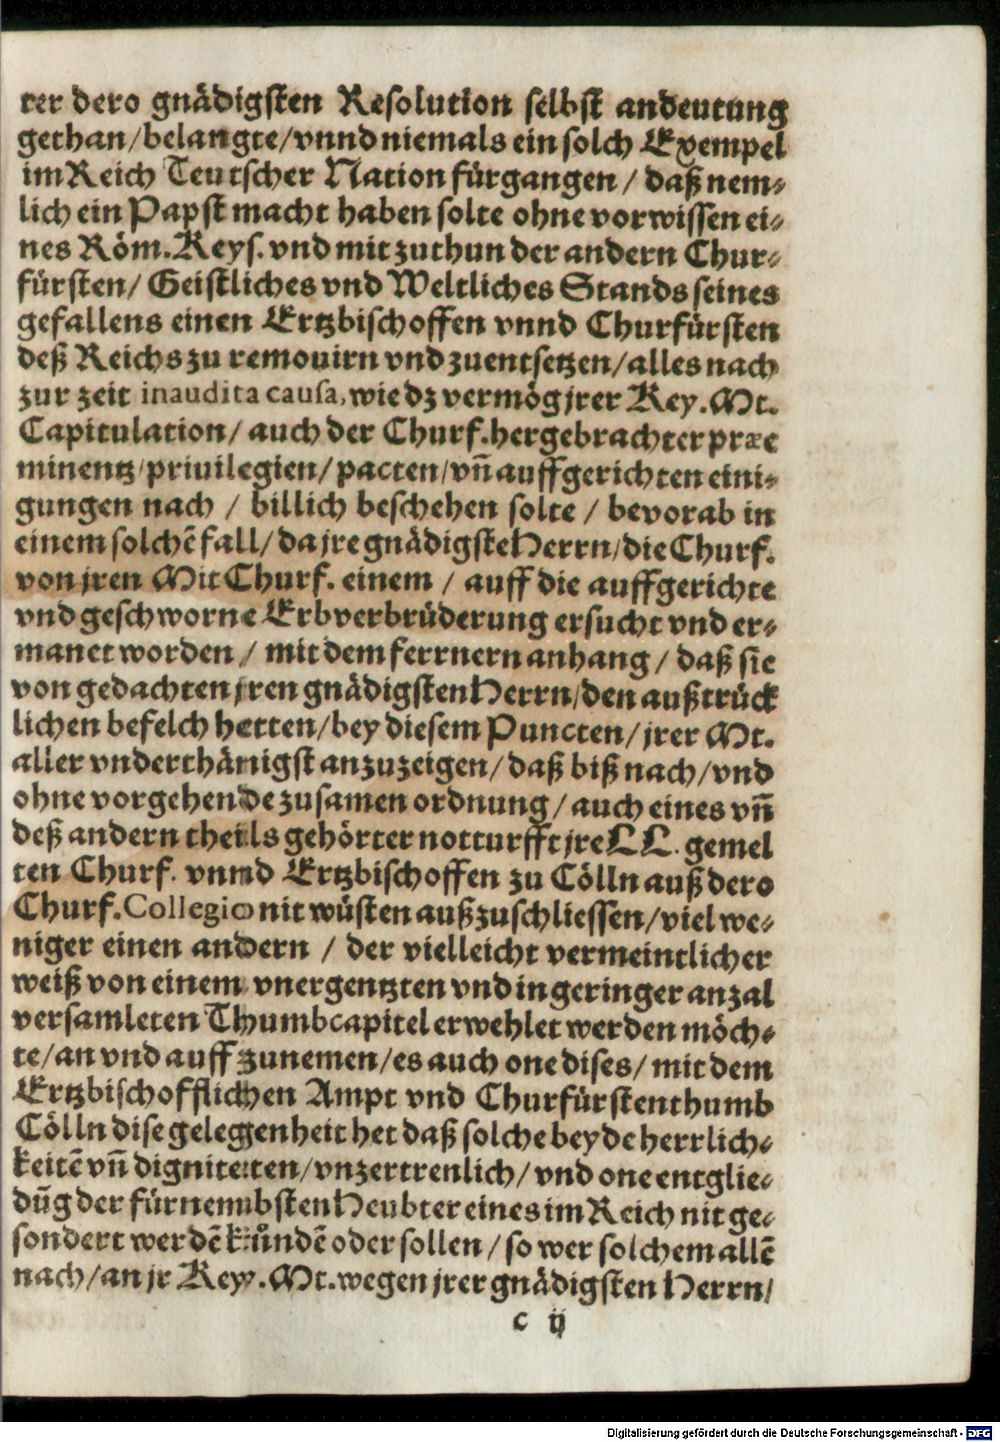 ter dero gnädigsten Resolution selbst andeutung
gethan/belangte/vnnd niemals ein solch Exempel
im Reich Teutscher Nation fürgangen / daß nem⸗
lich ein Papst macht haben solte ohne vorwissen ei⸗
nes Röm. Keys. vnd mit zuthun der andern Chur⸗
fürsten/ Geistliches vnd Weltliches Stands seines
gefallens einen Ertzbischoffen vnnd Churfürsten
deß Reichs zu remouirn vnd zuentsetzen/alles nach
zur zeit inaudita causa, wie dz vermög jrer Key. Mt.
Capitulation/ auch der Churf. hergebrachter præe
minentz/priuilegien/ pacten/vn̄ auffgerichten eini⸗
gungen nach / billich beschehen solte / bevorab in
einem solchē fall/ da jre gnädigste Herrn/die Churf.
von jren Mit Churf. einem / auff die auffgerichte
vnd geschworne Erbverbrüderung ersucht vnd er⸗
manet worden / mit dem ferrnern anhang / daß sie
von gedachten jren gnädigsten Herrn/den außtrück
lichen befelch hetten/bey diesem Puncten/ jrer Mt.
aller vnderthänigst anzuzeigen/ daß biß nach/vnd
ohne vorgehende zusamen ordnung / auch eines vn̄
deß andern theils gehörter notturfft jre LL. gemel
ten Churf. vnnd Ertzbischoffen zu Cölln auß dero
Churf. Collegio nit wüsten außzuschliessen/viel we⸗
niger einen andern / der vielleicht vermeintlicher
weiß von einem vnergentzten vnd in geringer anzal
versamleten Thumbcapitel erwehlet werden möch⸗
te/an vnd auff zunemen/es auch one dises/ mit dem
Ertzbischofflichen Ampt vnd Churfürstenthumb
Cölln dise gelegenheit het daß solche beyde herrlich⸗
keitē vn̄ digniteten/vnzertrenlich/ vnd one entglie⸗
dūg der fürnembsten Heubter eines im Reich nit ge⸗
sondert werdē kůndē oder sollen / so wer solchem allē
nach/an jr Key. Mt. wegen jrer gnädigsten Herrn/
c ij
Digitalisierung gefördert durch die Deutsche Forschungsgemeinschaft - DFG